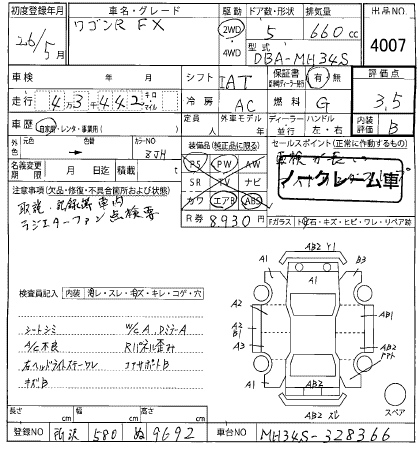 初度登録年月 車名・グレード 駆動 ドア数・形状 排気量 出品NO.
26/5月 ワゴンR FX 2WD 4WD 5 660cc 4007
型式 DBA-MH34S
車検 年 月 シフト IAT 保証書 有・無 評価点
走行 4万3千442 キロ マイル 冷房 AC 燃料 G 3.5
車歴 自家用・レンタ・事業用( ) 定員 人 外車モデル 年 ディーラー 並行 ハンドル 左・右 内装評価 B
外色 元色 色替 カラーNO 8JH 装備品(純正品に限る) セールスポイント(正常に作動するもの)
PS PW AW
車検が長い
名義変更期限 月 日迄 積載 t SR TV ナビ
ノークレーム車
注意事項(欠品・修復・不具合箇所および状態) カワ エアB ABS
取説、記録簿車内 R券 8,930円
Fガラス ト石・キズ・ヒビ・ワレ・リペア跡
ラジエターファン点検要
検査員記入 内装 汚レ・スレ・キズ・キレ・コゲ・穴
シートシミ W/C A、DミラーA
A/C不良 Rパネル歪み
左ヘッドライトステーワレ コアサポートB
キズB
AB2 Y1
A1 A1 B3
A2 A2
B1 AB1
A3
A1 AB2 A1
AB2 ズレ
スペア
長さ cm 幅 cm 高さ cm
登録NO 所沢 580 ぬ 9692 車台NO MH34S-328366